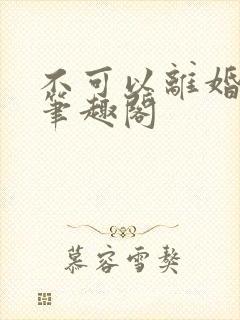 不可以離婚
筆趣閣
慕容雪獒